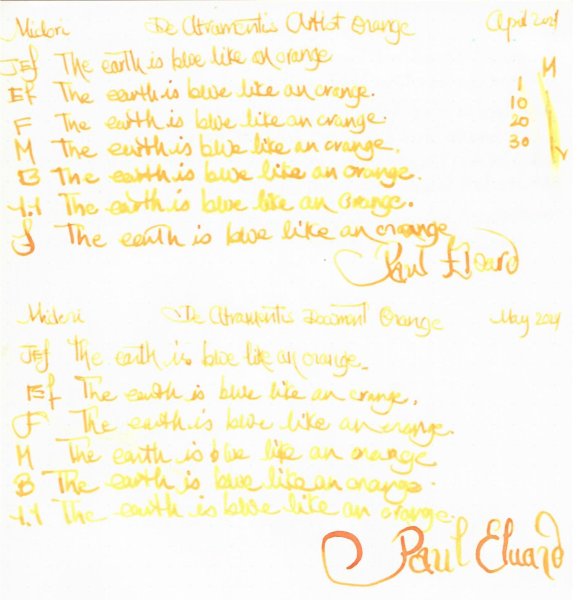 Midori De Atramentis Artist Orange April 2021
JEf The earth is blue like an orange
M
Ef The earth is blue like an orange. 1
F The earth is blue like an orange. 10
M The earth is blue like an orange. 20
B The earth is blue like an orange. 30
1.1 The earth is blue like an orange.
J The earth is blue like an orange
Paul Eluard
Midori De Atramentis Document Orange May 2021
JEf The earth is blue like an orange.
Ef The earth is blue like an orange.
F The earth is blue like an orange.
M The earth is blue like an orange
B The earth is blue like an orange.
1.1 The earth is blue like an orange.
Paul Eluard